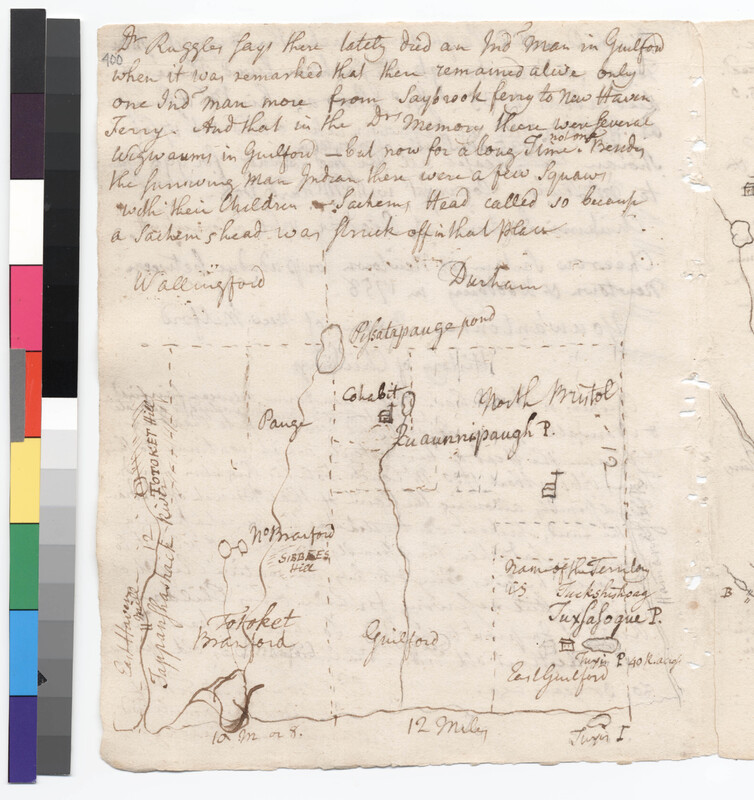 400
Dr Ruggles says there lately died an Indn Man in Guilford
when it was remarked that there remained alive only
one Indn man more from Saybrook ferry to New Haven
Ferry. And that in the Drs Memory there were several
Wigwaums in Guilford — but now for a long Time not one. Besides
the surviving man Indian there were a few Squaws
with their Children. Sachems Head called so because
a Sachems head was struck off in that Place
Wallingford
Durham
Pissatapauge pond
Cohabit
North Bristol
Pauge
Quaunnipaugh P.
TOTOKET Hill
No Branford
SIBBIES
Hill
Name of the Territory
is Tuckshishoag
Tuxsasogue P.
Totoket
Branford
Guilford
Tuxis P. 40 R. acroſs
East Guilford
East Haven
River
Tappanshashack River
12
B
10 M or 8.
12 Miles
Tuxis I.